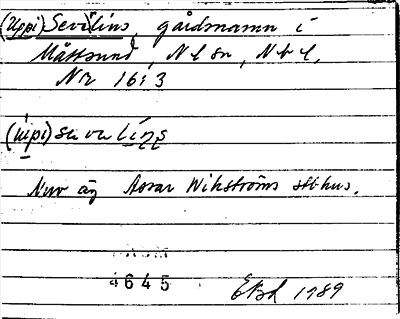 (Uppi) Sevilins, gårdsnamn i
Måttsund, Nl sn, Nbl.
Nr 16:3
(ùpi) sevelins
Nuv äg Assar Wikströms sthus.
4645
EBd 1989